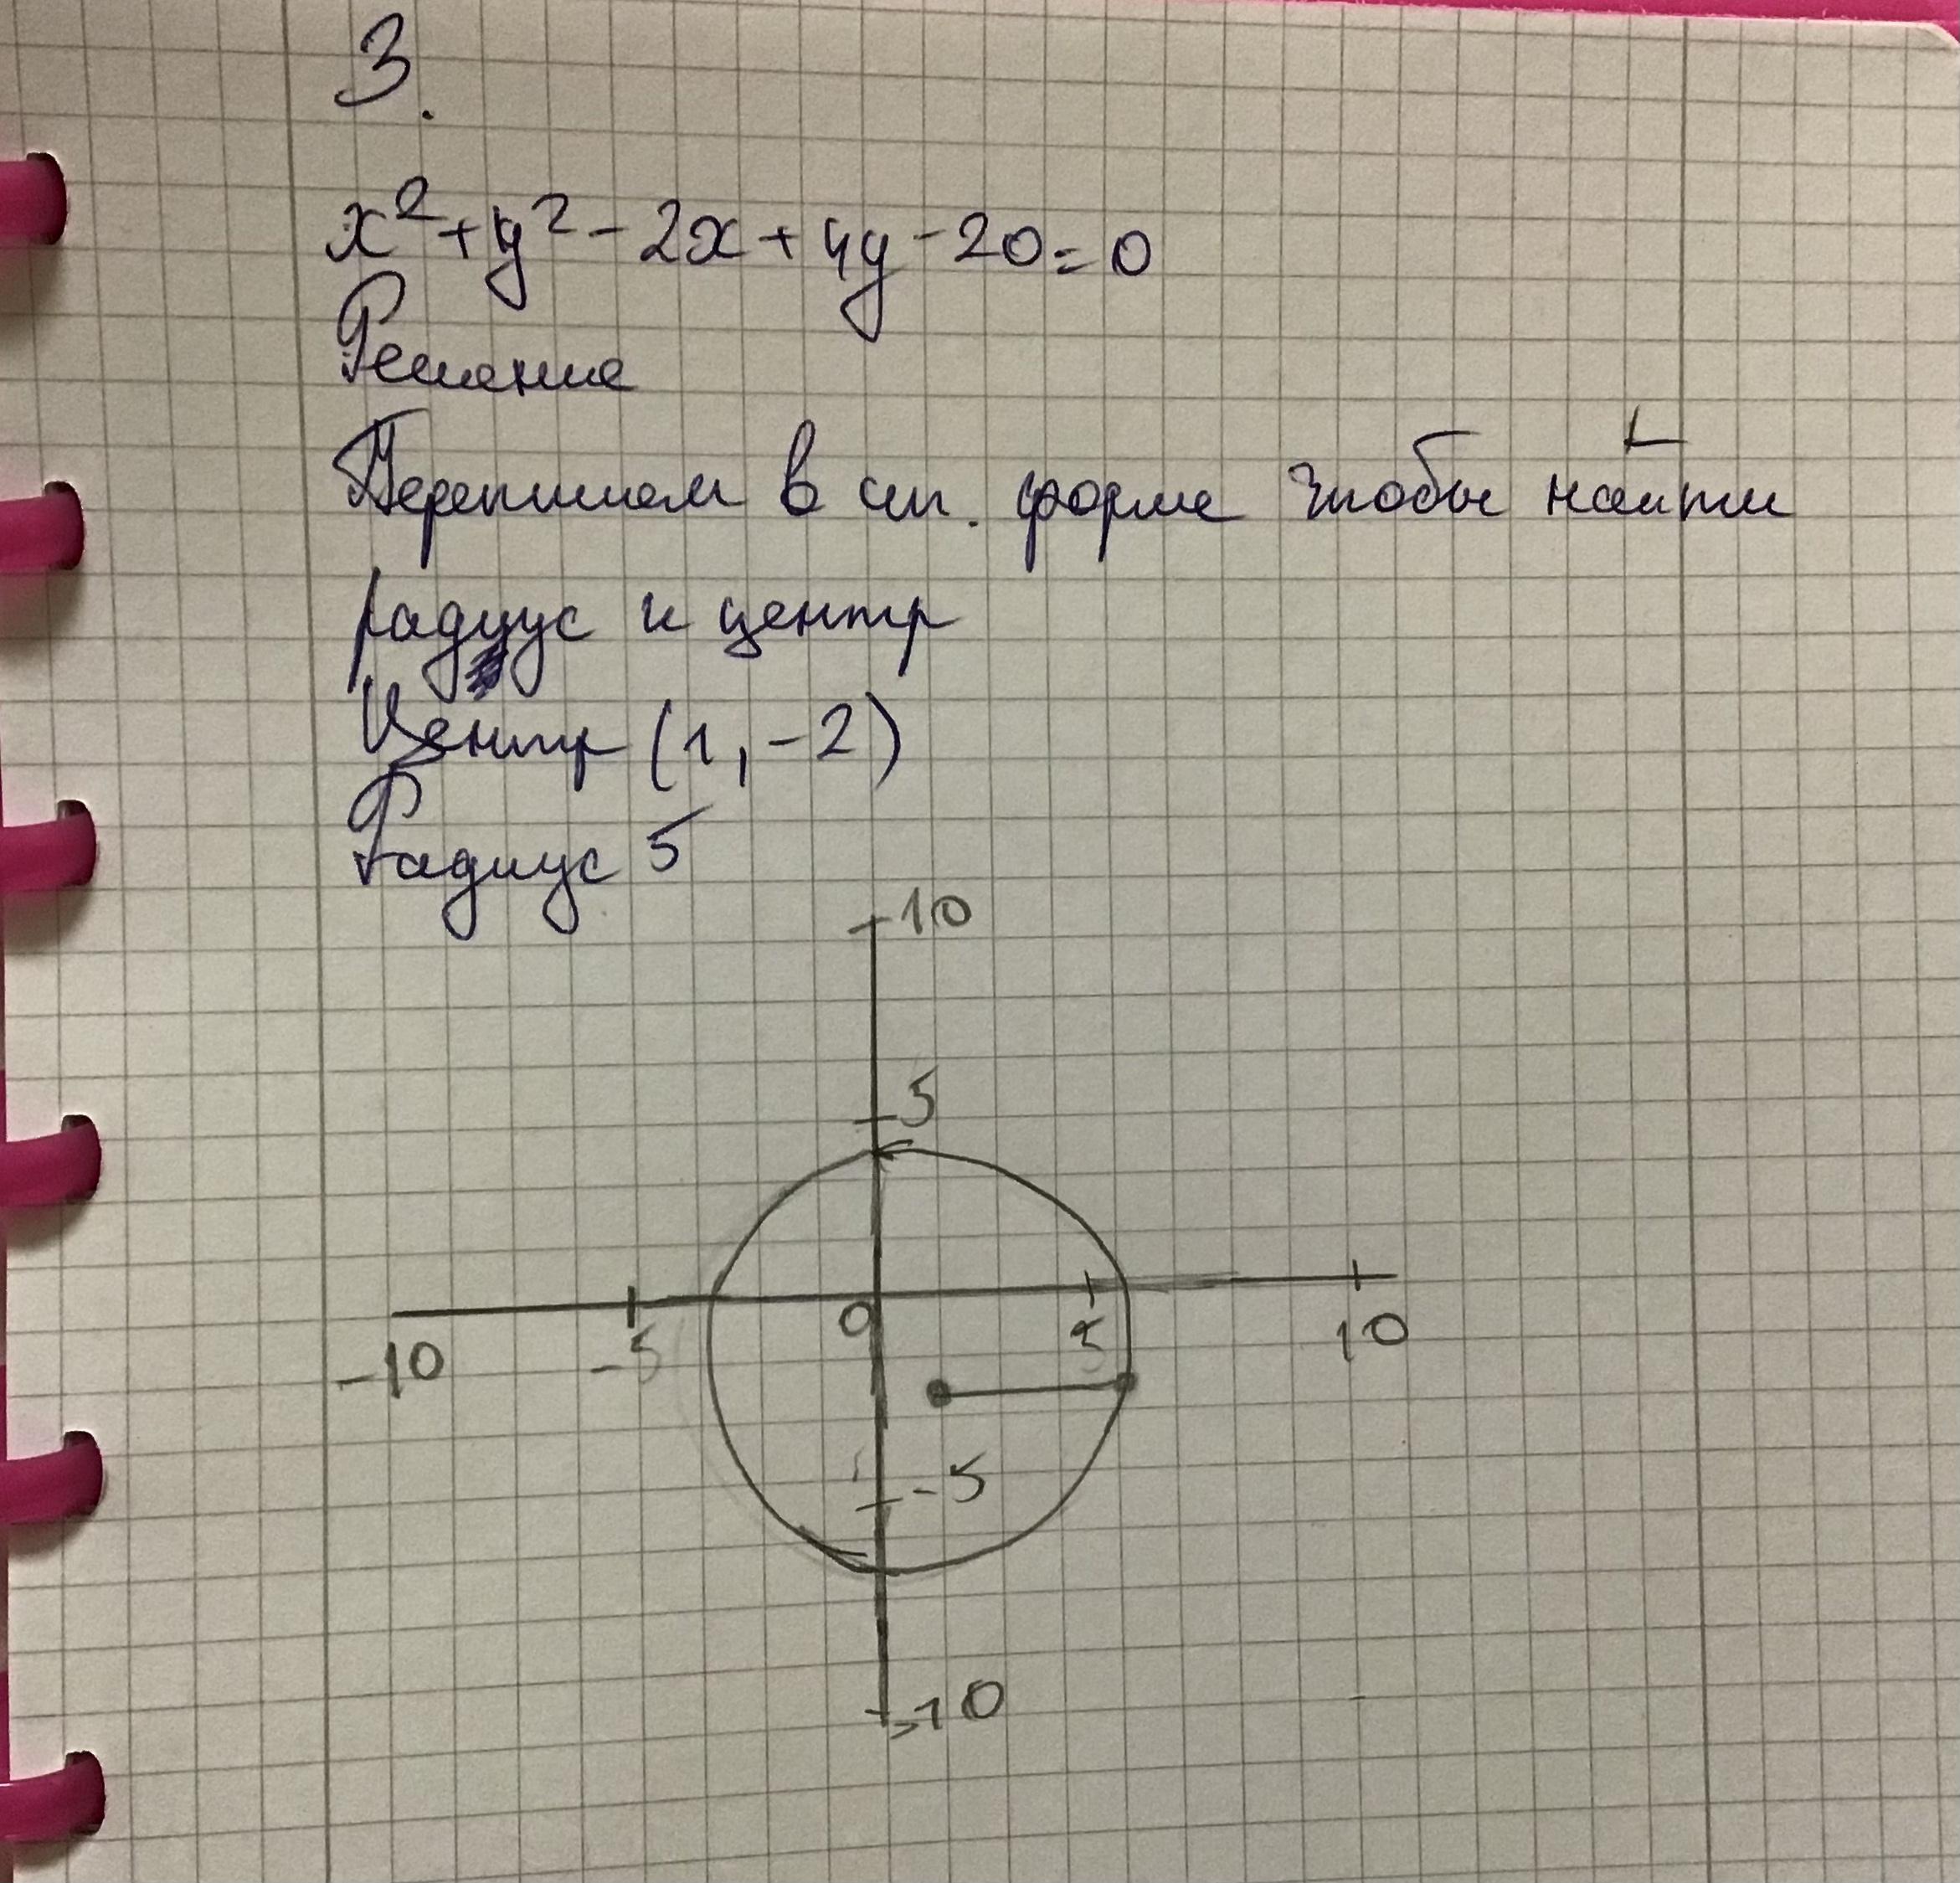 3.
x² + y² - 2x + 4y - 20 = 0
Решение
Перепишем в ст. форме чтобы найти
радиус и центр
Центр (1, -2)
Радиус 5
10
5
-10 -5 0 5 10
-5
-10